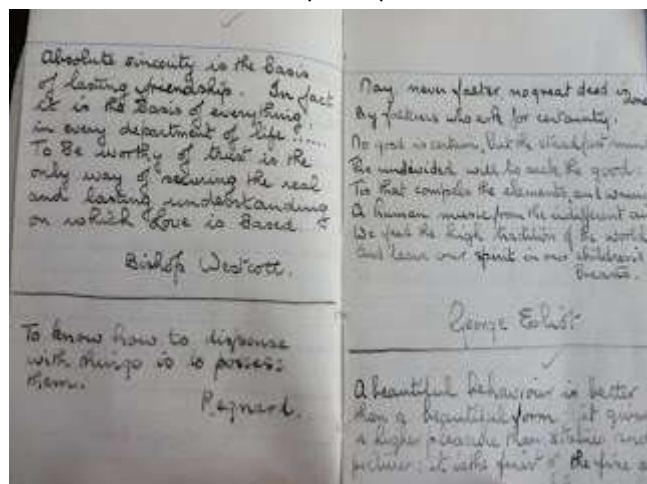 Absolute sincerity is the Basis
of lasting friendship. In fact
it is the Basis of everything
in every department of life!.....
To Be worthy of trust is the
only way of securing the real
and lasting understanding
on which Love is Based.
Bishop Westcott.
To know how to dispense
with things is to possess
them.
Regnard.
Nay never falter no great deed is done
By falterers who ask for certainty.
No good is certain, but the steadfast mind
The undivided will to seek the good:
Tis that compels the elements, and wrings
A human music from the indifferent air
We feed the high tradition of the world
and leave our spirit in our children's
Breasts.
George Eliot
A beautiful behaviour is better
than a beautiful form it gives
a higher pleasure than statues and
pictures: it is the finest of the fine